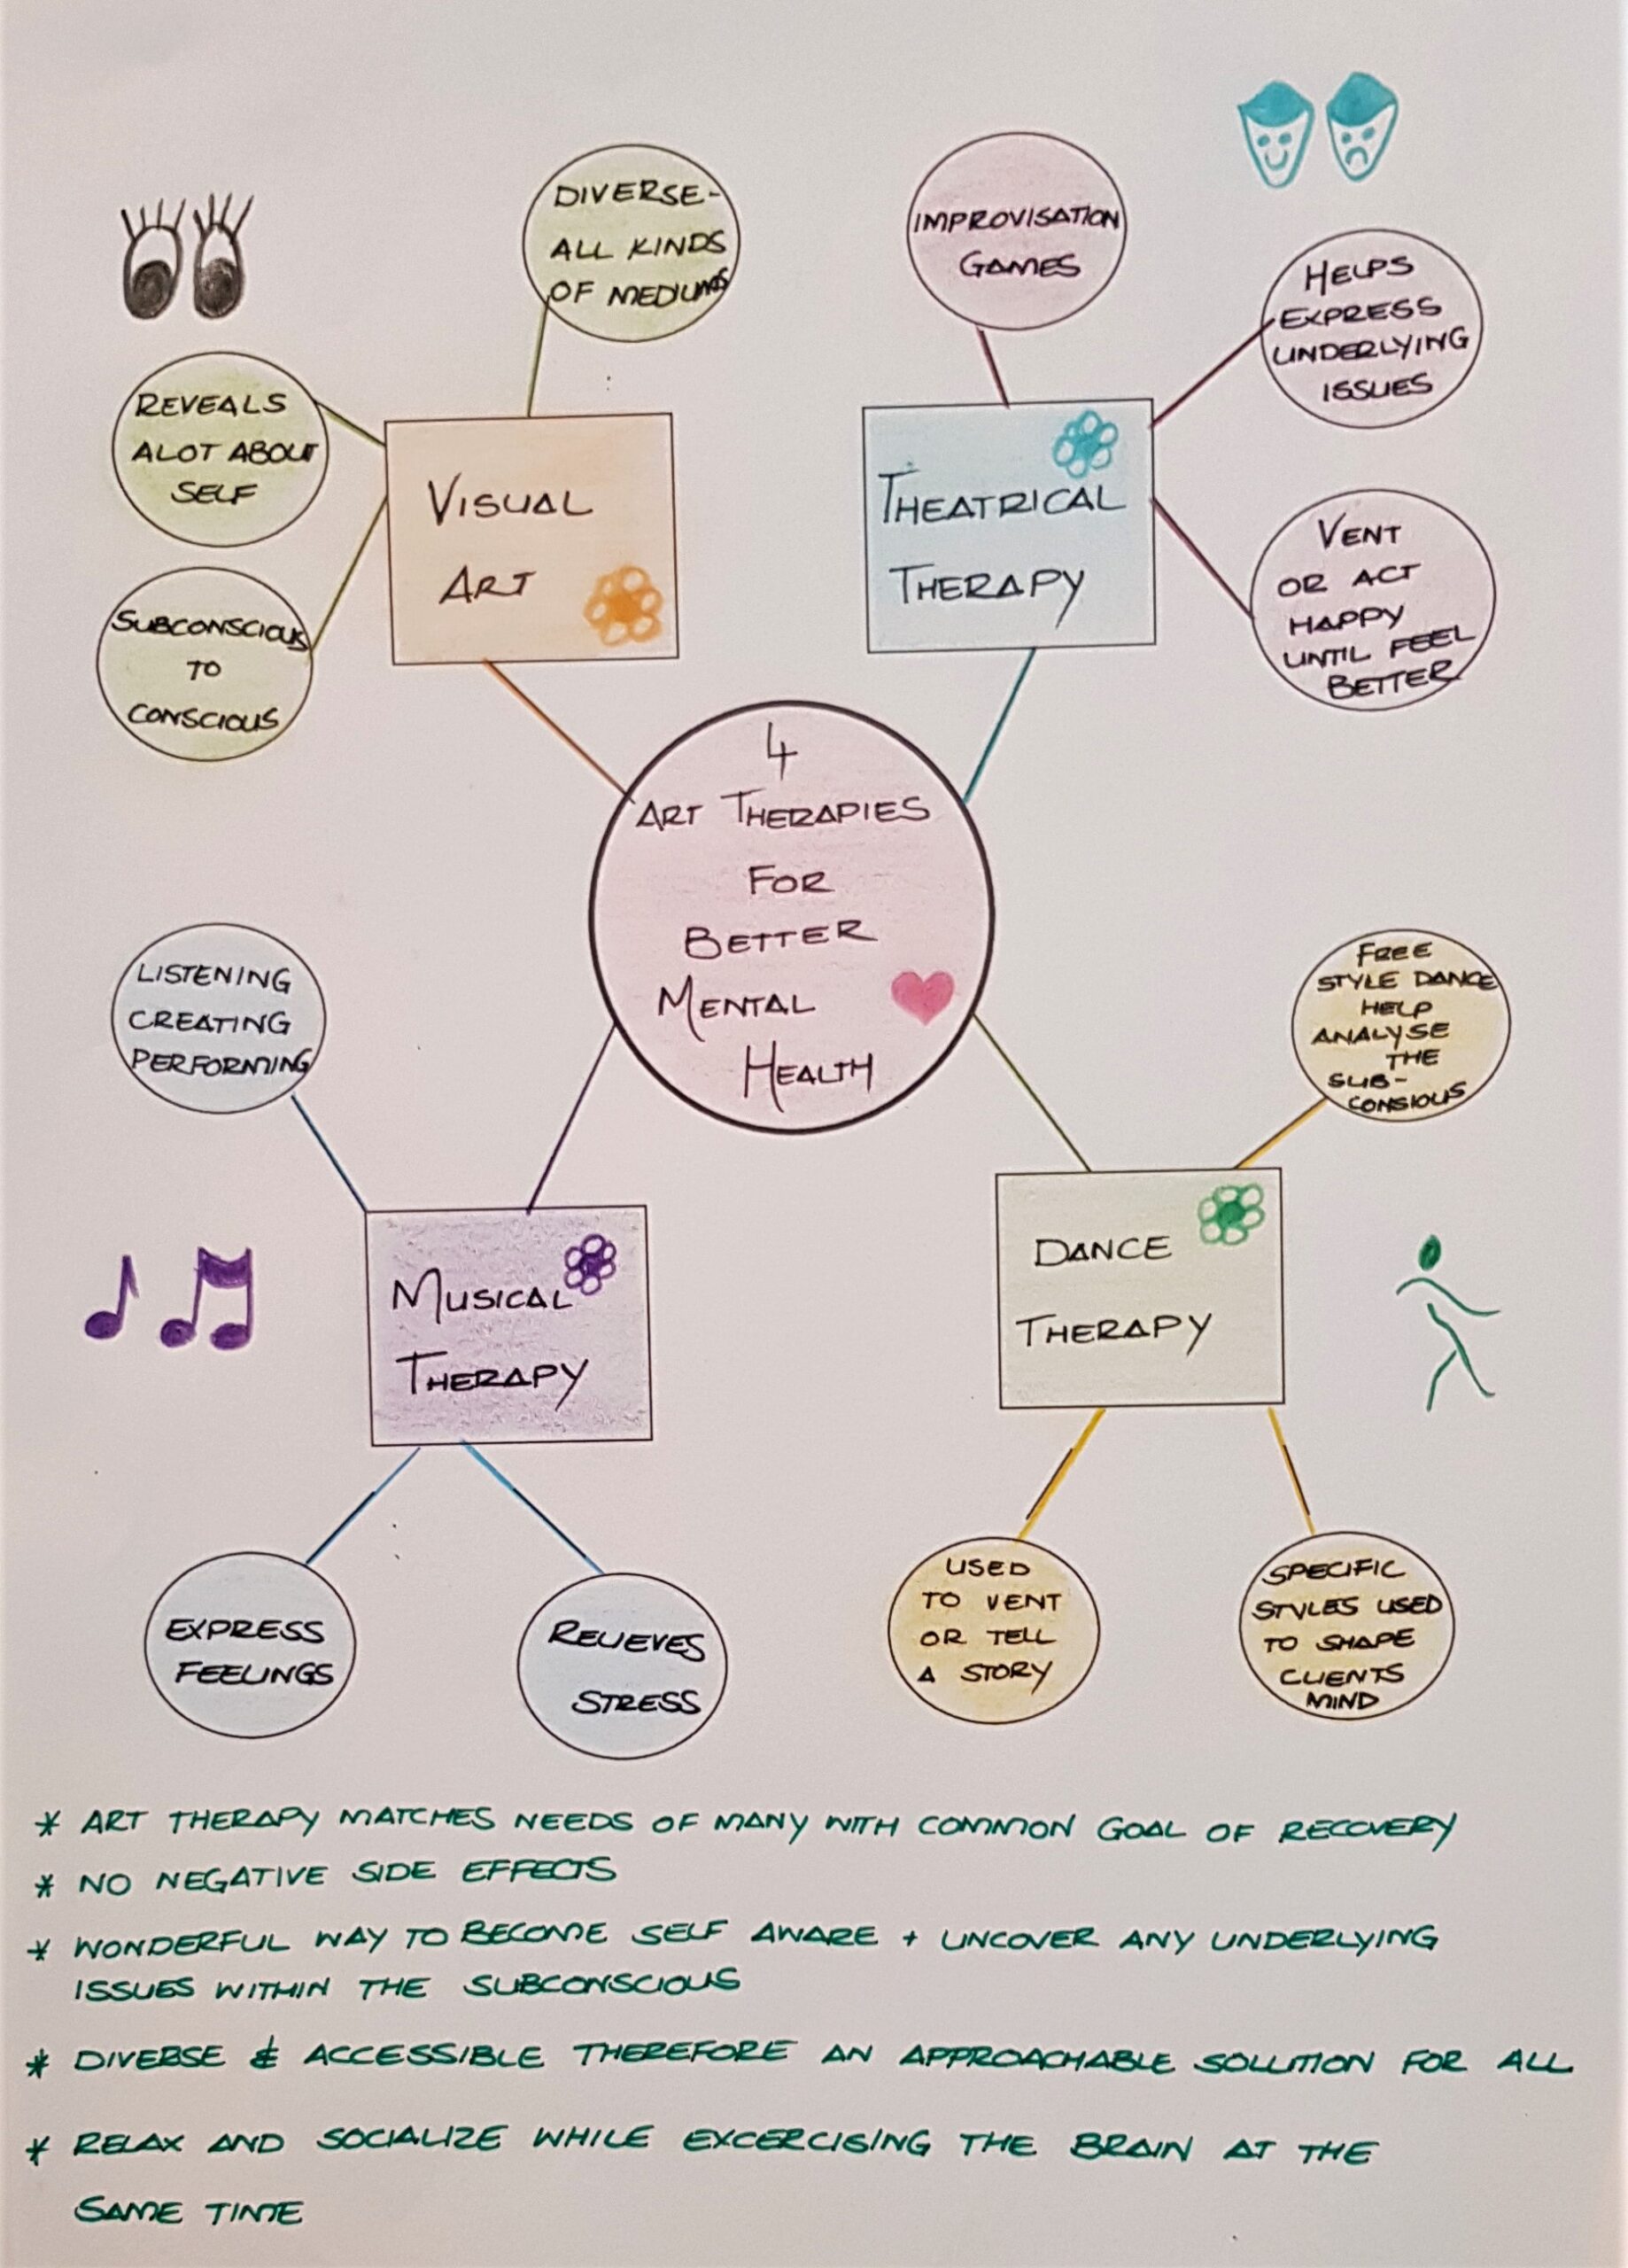 DIVERSE-
ALL KINDS
OF MEDIUMS
REVEALS
ALOT ABOUT
SELF
SUBCONSCIOUS
TO
CONSCIOUS
VISUAL
ART
IMPROVISATION
GAMES
HELPS
EXPRESS
UNDERLYING
ISSUES
VENT
OR ACT
HAPPY
UNTIL FEEL
BETTER
THEATRICAL
THERAPY
4
ART THERAPIES
FOR
BETTER
MENTAL
HEALTH
LISTENING
CREATING
PERFORMING
MUSICAL
THERAPY
EXPRESS
FEELINGS
RELIEVES
STRESS
FREE
STYLE DANCE
HELP
ANALYSE
THE
SUB-
CONSIOUS
DANCE
THERAPY
USED
TO VENT
OR TELL
A STORY
SPECIFIC
STYLES USED
TO SHAPE
CLIENTS
MIND
* ART THERAPY MATCHES NEEDS OF MANY WITH COMMON GOAL OF RECOVERY
* NO NEGATIVE SIDE EFFECTS
* WONDERFUL WAY TO BECOME SELF AWARE + UNCOVER ANY UNDERLYING
ISSUES WITHIN THE SUBCONSCIOUS
* DIVERSE & ACCESSIBLE THEREFORE AN APPROACHABLE SOLUTION FOR ALL
* RELAX AND SOCIALIZE WHILE EXCERCISING THE BRAIN AT THE
SAME TIME